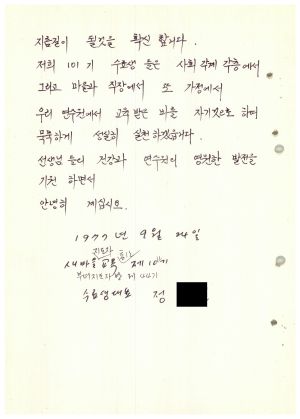 지름길이 될것을 확신 합니다.
저희 101기 수료생 들은 사회 각계 각층에서
그리고 마을과 직장에서 또 가정에서
우리 연수원에서 교육 받은 바를 자기것으로 하며
묵묵하게 성실히 실천 하겠습니다.
선생님 들의 건강과 연수원의 영원한 발전을
기원 하면서
안녕히 계십시요.
1977年 9월 24일
지도자
새마을 교육 제101기
부녀지도자반 제44기
수료생대표 정